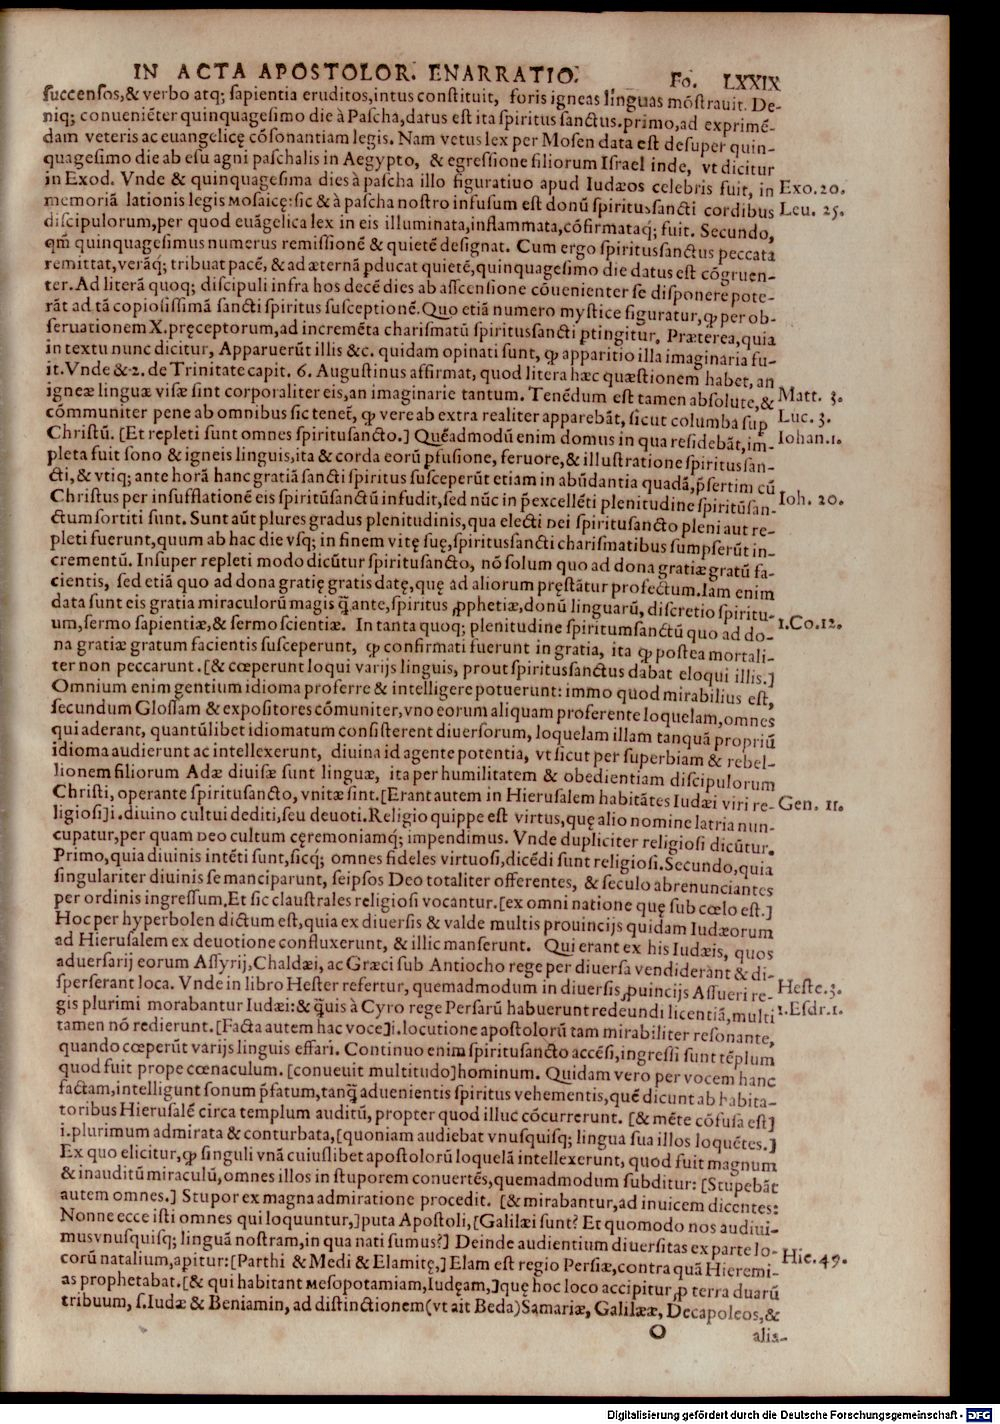 IN ACTA APOSTOLOR. ENARRATIO. Fo. LXXIX
succensos,& verbo atq; sapientia eruditos,intus constituit, foris igneas linguas mōstrauit. De-
niq; conueniēter quinquagesimo die à Pascha,datus est ita spiritus sanctus.primo,ad exprimē-
dam veteris ac euangelicę cōsonantiam legis. Nam vetus lex per Mosen data est desuper quin-
quagesimo die ab esu agni paschalis in Aegypto, & egressione filiorum Israel inde, vt dicitur
in Exod. Vnde & quinquagesima dies à pascha illo figuratiuo apud Iudæos celebris fuit, in Exo.20.
memoriā lationis legis Mosaicę:sic & à pascha nostro infusum est donū spiritussancti cordibus Leu. 25.
discipulorum,per quod euāgelica lex in eis illuminata,inflammata,cōfirmataq; fuit. Secundo,
qm̄ quinquagesimus numerus remissionē & quietē designat. Cum ergo spiritussanctus peccata
remittat,verāq; tribuat pacē, & ad æternā pducat quietē,quinquagesimo die datus est cōgruen-
ter. Ad literā quoq; discipuli infra hos decē dies ab ascensione cōuenienter se disponere pote-
rāt ad tā copiosissimā sancti spiritus susceptionē. Quo etiā numero mystice figuratur, ꝙ per ob-
seruationem X.pręceptorum,ad incremēta charismatū spiritussancti ptingitur. Præterea,quia
in textu nunc dicitur, Apparuerūt illis &c. quidam opinati sunt, ꝙ apparitio illa imaginaria fu-
it. Vnde & 2. de Trinitate capit. 6. Augustinus affirmat, quod litera hæc quæstionem habet, an
igneæ linguæ visæ sint corporaliter eis,an imaginarie tantum. Tenēdum est tamen absolute,& Matt. 3.
cōmmuniter pene ab omnibus sic tenet̄, ꝙ vere ab extra realiter apparebāt, sicut columba sup Luc. 3.
Christū. [Et repleti sunt omnes spiritusancto.] Quēadmodū enim domus in qua residebāt,im- Iohan.1.
pleta fuit sono & igneis linguis,ita & corda eorū pfusione, feruore,& illustratione spiritussan-
cti,& vtiq; ante horā hanc gratiā sancti spiritus susceperūt etiam in abūdantia quadā,p̄sertim cū
Christus per insufflationē eis spiritūsanctū infudit,sed nūc in p̄excellēti plenitudine spiritūsan- Ioh. 20.
ctum sortiti sunt. Sunt aūt plures gradus plenitudinis,qua electi Dei spiritusancto pleni aut re-
pleti fuerunt,quum ab hac die vsq; in finem vitę suę,spiritussancti charismatibus sumpserūt in-
crementū. Insuper repleti modo dicūtur spiritusancto, nō solum quo ad dona gratiæ gratū fa-
cientis, sed etiā quo ad dona gratię gratis datę,quę ad aliorum pręstātur profectum.Iam enim
data sunt eis gratia miraculorū magis q̄ ante,spiritus ꝓphetiæ,donū linguarū, discretio spiritu-
um,sermo sapientiæ,& sermo scientiæ. In tanta quoq; plenitudine spiritumsanctū quo ad do- 1.Co.12.
na gratiæ gratum facientis susceperunt, ꝙ confirmati fuerunt in gratia, ita ꝙ postea mortali-
ter non peccarunt. [& cœperunt loqui varijs linguis, prout spiritussanctus dabat eloqui illis.]
Omnium enim gentium idioma proferre & intelligere potuerunt: immo quod mirabilius est,
secundum Glossam & expositores cōmuniter,vno eorum aliquam proferente loquelam,omnes
qui aderant, quantūlibet idiomatum consisterent diuersorum, loquelam illam tanquā propriū
idioma audierunt ac intellexerunt, diuina id agente potentia, vt sicut per superbiam & rebel-
lionem filiorum Adæ diuisæ sunt linguæ, ita per humilitatem & obedientiam discipulorum
Christi, operante spiritusancto, vnitæ sint.[Erant autem in Hierusalem habitātes Iudæi viri re- Gen. 11.
ligiosi]i.diuino cultui dediti,seu deuoti.Religio quippe est virtus,quę alio nomine latria nun-
cupatur,per quam Deo cultum cęremoniamq; impendimus. Vnde dupliciter religiosi dicūtur.
Primo,quia diuinis intēti sunt,sicq; omnes fideles virtuosi,dicēdi sunt religiosi.Secundo,quia
singulariter diuinis se manciparunt, seipsos Deo totaliter offerentes, & seculo abrenunciantes
per ordinis ingressum,Et sic claustrales religiosi vocantur.[ex omni natione quę sub cœlo est.]
Hoc per hyperbolen dictum est,quia ex diuersis & valde multis prouincijs quidam Iudæorum
ad Hierusalem ex deuotione confluxerunt, & illic manserunt. Qui erant ex his Iudæis, quos
aduersarij eorum Assyrij,Chaldæi, ac Græci sub Antiocho rege per diuersa vendiderant & di-
sperserant loca. Vnde in libro Hester refertur, quemadmodum in diuersis ꝓuincijs Assueri re- Heste.3.
gis plurimi morabantur Iudæi:& q̄uis à Cyro rege Persarū habuerunt redeundi licentiā,multi 1.Esdr.1.
tamen nō redierunt. [Facta autem hac voce]i.locutione apostolorū tam mirabiliter resonante,
quando cœperūt varijs linguis effari. Continuo enim spiritusancto accēsi,ingressi sunt tēplum
quod fuit prope cœnaculum. [conueuit multitudo]hominum. Quidam vero per vocem hanc
factam,intelligunt sonum p̄fatum,tanq̄ aduenientis spiritus vehementis,quē dicunt ab habita-
toribus Hierusalē circa templum auditū, propter quod illuc cōcurrerunt. [& mēte cōfusa est]
i.plurimum admirata & conturbata,[quoniam audiebat vnusquisq; lingua sua illos loquētes.]
Ex quo elicitur,ꝙ singuli vnā cuiuslibet apostolorū loquelā intellexerunt, quod fuit magnum
& inauditū miraculū,omnes illos in stuporem conuertēs,quemadmodum subditur: [Stupebāt
autem omnes.] Stupor ex magna admiratione procedit. [& mirabantur,ad inuicem dicentes:
Nonne ecce isti omnes qui loquuntur,]puta Apostoli,[Galilæi sunt? Et quomodo nos audiui-
mus vnusquisq; linguā nostram,in qua nati sumus?] Deinde audientium diuersitas ex parte lo-
corū natalium,apitur: [Parthi & Medi & Elamitę,] Elam est regio Persiæ,contra quā Hieremi- Hie.49.
as prophetabat.[& qui habitant Mesopotamiam,Iudęam,]quę hoc loco accipitur,ꝓ terra duarū
tribuum, s.Iudæ & Beniamin, ad distinctionem(vt ait Beda)Samariæ, Galilææ, Decapoleos,&
O alia-
Digitalisierung gefördert durch die Deutsche Forschungsgemeinschaft - DFG